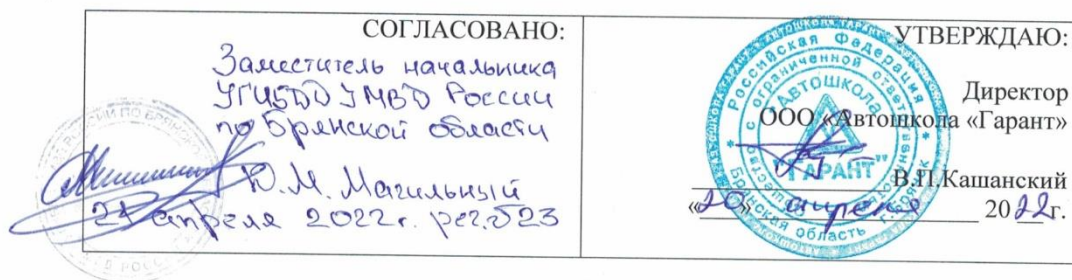 СОГЛАСОВАНО:
Заместитель начальника
УГИБДД УМВД России
по Брянской области
Ю.М. Магильный
21 апреля 2022г. рег.523
УТВЕРЖДАЮ:
Директор
ООО «Автошкола «Гарант»
В.П.Кашанский
«20» апреля 2022г.
Российская Федерация
с ограниченной ответственностью
АВТОШКОЛА
"ГАРАНТ"
Брянская область
г.Брянск